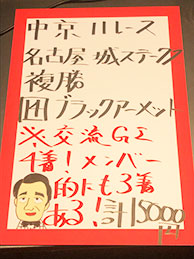 中京11レース
名古屋城ステークス
複勝
囲ブラックアーメット
※交流GⅠ
4着!メンバー
的にも3着
ある!計15000
円